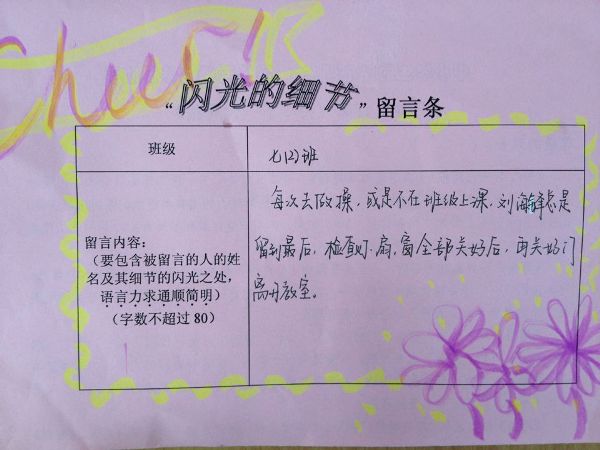 Cheer!
“闪光的细节”留言条
班级
七(2)班
留言内容:
(要包含被留言的人的姓
名及其细节的闪光之处,
语言力求通顺简明)
(字数不超过80)
每次去做操,或是不在班级上课,刘海鲜总是
留到最后,检查灯、扇、窗全部关好后,再关好门
离开教室。